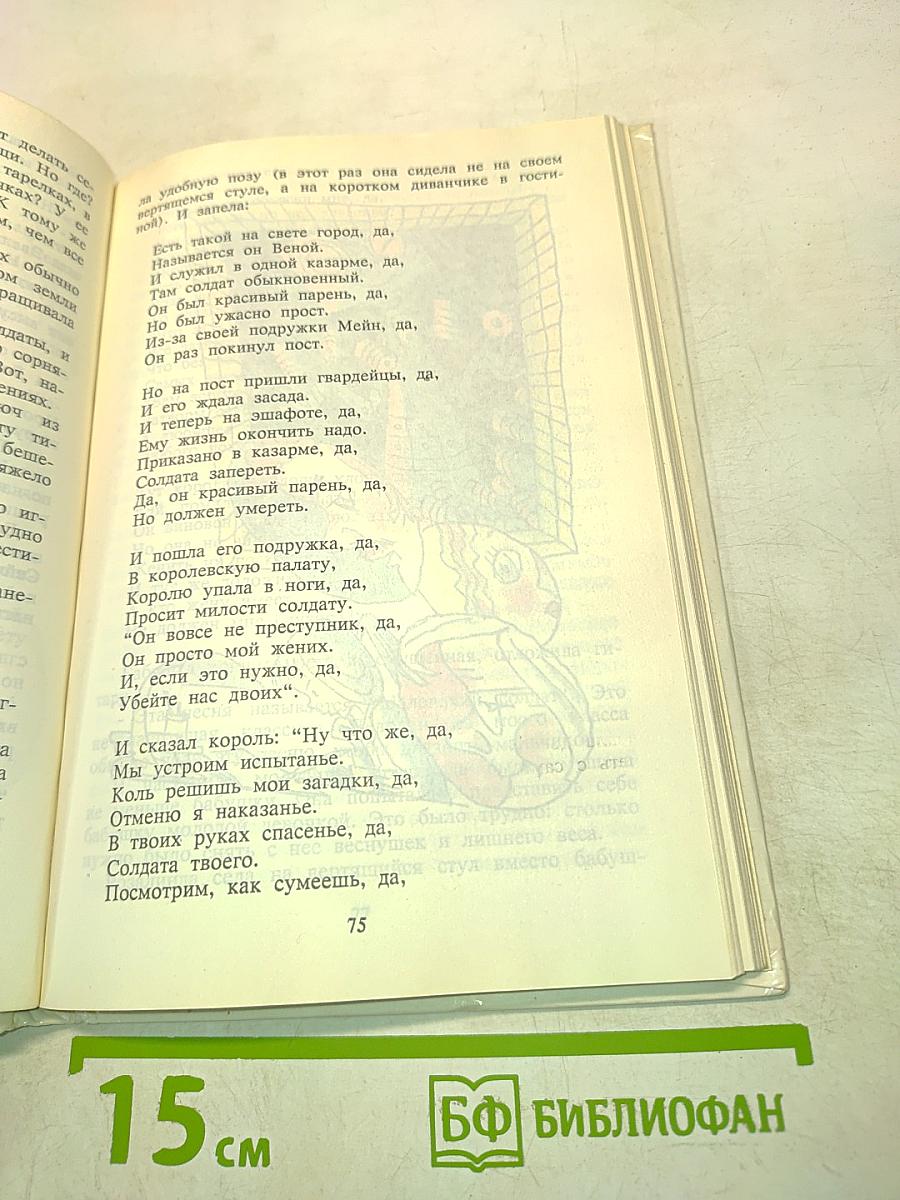 т делать се-
щи. Но где?
тарелках, в
нках? У ее
К тому же
м, чем все
х обычно
ом земли
ращивала
лдаты, и
о сорня-
Вот, на-
ениях.
юч из
гу ти-
беше-
яжело
о иг-
удно
ести-
ане-
г-
а
а
ла удобную позу (в этот раз она сидела не на своем
вертящемся стуле, а на коротком диванчике в гости-
ной). И запела:
Есть такой на свете город, да,
Называется он Веной.
И служил в одной казарме, да,
Там солдат обыкновенный.
Он был красивый парень, да,
Но был ужасно прост.
Из-за своей подружки Мейн, да,
Он раз покинул пост.
Но на пост пришли гвардейцы, да,
И его ждала засада.
И теперь на эшафоте, да,
Ему жизнь окончить надо.
Приказано в казарме, да,
Солдата запереть.
Да, он красивый парень, да,
Но должен умереть.
И пошла его подружка, да,
В королевскую палату,
Королю упала в ноги, да,
Просит милости солдату.
“Он вовсе не преступник, да,
Он просто мой жених.
И, если это нужно, да,
Убейте нас двоих“.
И сказал король: “Ну что же, да,
Мы устроим испытанье.
Коль решишь мои загадки, да,
Отменю я наказанье.
В твоих руках спасенье, да,
Солдата твоего.
Посмотрим, как сумеешь, да,
75
15 см
БФ БИБЛИОФАН